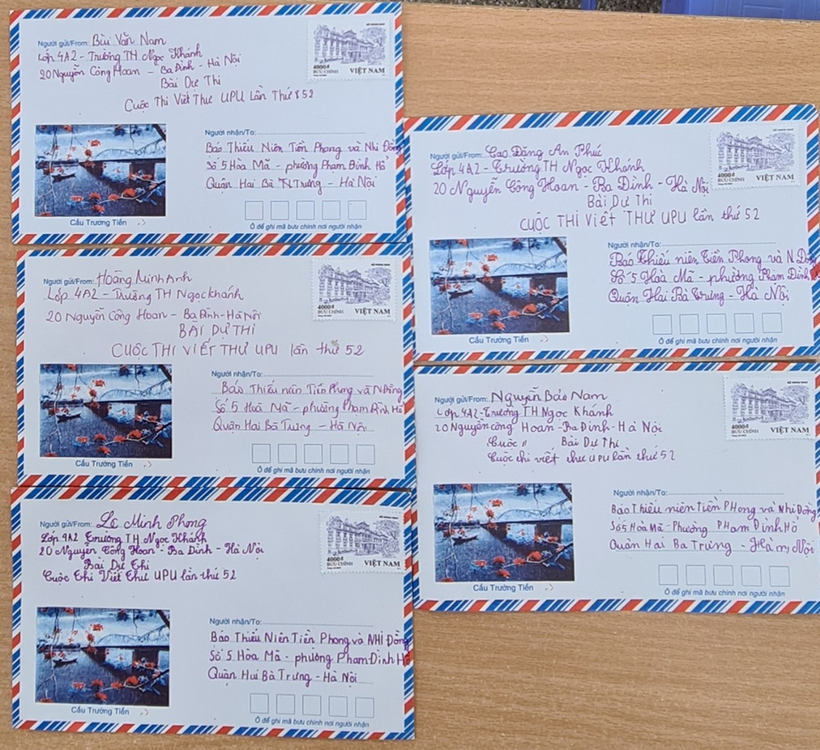 Người gửi/From: Bùi Văn Nam
Lớp 4A2 - Trường TH Ngọc Khánh
20 Nguyễn Công Hoan - Ba Đình - Hà Nội
Bài Dự Thi
Cuộc Thi Viết Thư UPU Lần Thứ 52
4000đ
BƯU CHÍNH
VIỆT NAM
Người nhận/To:
Báo Thiếu Niên Tiền Phong và Nhi Đồng
Số 5 Hòa Mã - phường Phạm Đình Hổ
Quận Hai Bà Trưng - Hà Nội
Cầu Trường Tiền
Ô để ghi mã bưu chính nơi người nhận
Người gửi/From: Hoàng Minh Anh
Lớp 4A2 - Trường TH Ngọc Khánh
20 Nguyễn Công Hoan - Ba Đình - Hà Nội
BÀI DỰ THI
CUỘC THI VIẾT THƯ UPU lần thứ 52
4000đ
BƯU CHÍNH
VIỆT NAM
Người nhận/To:
Báo Thiếu niên Tiền Phong và N Đồng
Số 5 Hoà Mã - phường Phạm Đình Hổ
Quận Hai Bà Trưng - Hà Nội
Cầu Trường Tiền
Ô để ghi mã bưu chính nơi người nhận
Người gửi/From: Lê Minh Phong
Lớp 4A2 Trường TH Ngọc Khánh
20 Nguyễn Công Hoan - Ba Đình - Hà Nội
Bài Dự Thi
Cuộc Thi Viết Thư UPU lần thứ 52
4000đ
BƯU CHÍNH
VIỆT NAM
Người nhận/To:
Báo Thiếu Niên Tiền Phong và NHi Đồng
Số 5 Hòa Mã - phường Phạm Đình Hổ
Quận Hai Bà Trưng - Hà Nội
Cầu Trường Tiền
Ô để ghi mã bưu chính nơi người nhận
Người gửi/From: Cao Đăng An Phúc
Lớp 4A2 - Trường TH Ngọc Khánh
20 Nguyễn Công Hoan - Ba Đình - Hà Nội
Bài Dự Thi
CUỘC THI VIẾT THƯ UPU lần thứ 52
4000đ
BƯU CHÍNH
VIỆT NAM
Người nhận/To:
Báo Thiếu niên Tiền Phong và N Đồng
Số 5 Hoà Mã - phường Phạm Đình
Quận Hai Bà Trưng - Hà Nội
Cầu Trường Tiền
Ô để ghi mã bưu chính nơi người nhận
Người gửi/From: Nguyễn Bảo Nam
Lớp 4A2 - Trường TH Ngọc Khánh
20 Nguyễn công Hoan - Ba Đình - Hà Nội
Cuộc Bài Dự Thi
Cuộc thi viết thư UPU lần thứ 52
4000đ
BƯU CHÍNH
VIỆT NAM
Người nhận/To:
Báo Thiếu niên Tiền PHong và Nhi Đồng
Số 5 Hoà Mã - Phường PHạm Đình Hổ
Quận Hai Bà Trưng - Hà Nội
Cầu Trường Tiền
Ô để ghi mã bưu chính nơi người nhận